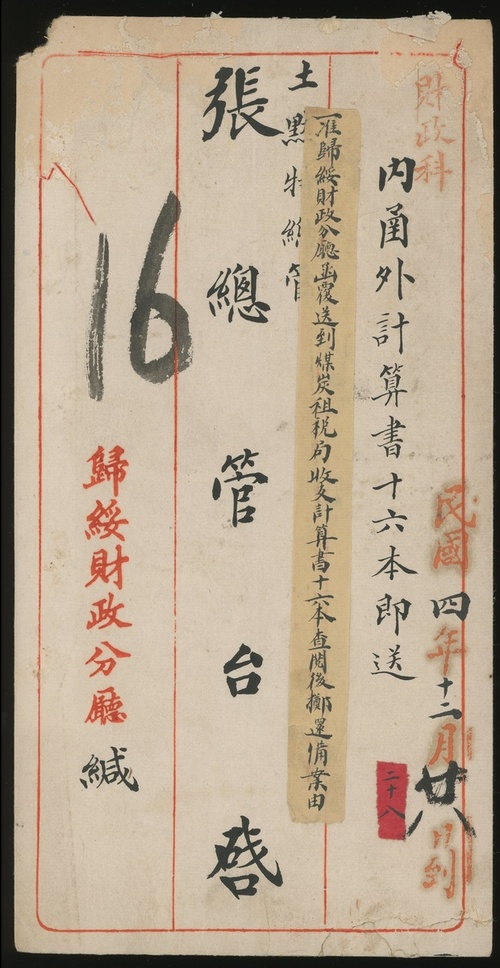 財政科
民國四年十二月廿八日到
內函外計算書十六本即送
二十八
一准歸綏財政分廳函覆送到煤炭租稅局收支計算書十六本查閱後擲還備案由
土默特總管
張總管台啓
16
歸綏財政分廳緘